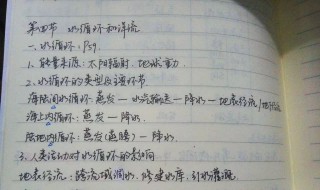 第四节 水循环和洋流
一、水循环：P59.
1、能量来源：太阳辐射、地球重力
2、水循环的类型及溪环节
海陆间水循环：蒸发—水汽输送—降水—地表径流/地下径流
海上内循环：蒸发—降水.
陆地内循环：蒸发(蒸腾)—降水.
3、人类活动对水循环的影响
地表径流：跨流域调水、修建水库、引水灌溉